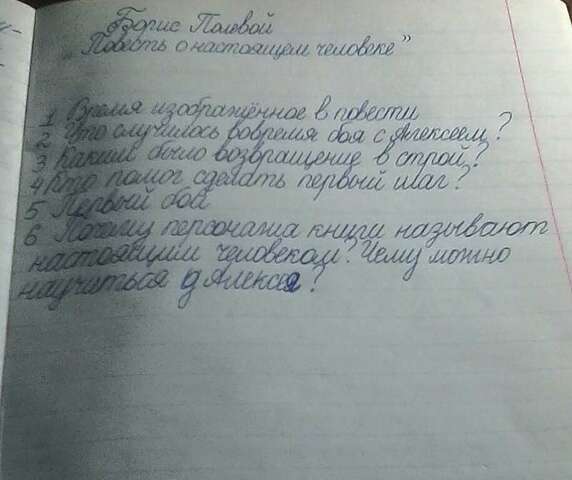 Борис Полевой
„Повесть о настоящем человеке"
1 Время изображённое в повести
2 Что случилось вовремя боя с Алексеем?
3 Каким было возвращение в строй?
4 Кто помог сделать первый шаг?
5 Первый бой
6 Почему персонажа книги называют
настоящим человеком? Чему можно
научиться у Алексея?